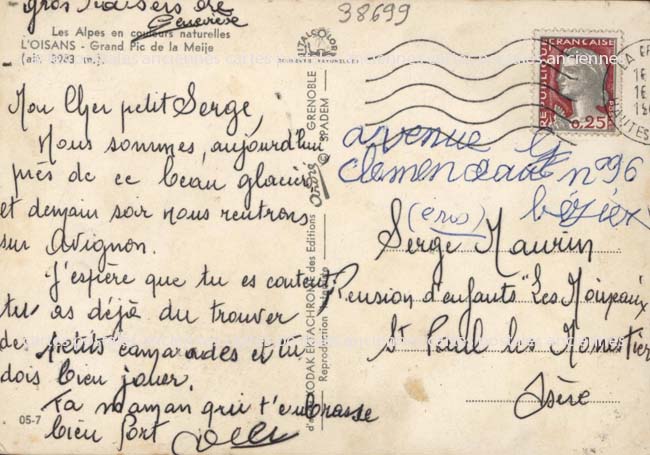 38699
gros baisers de
Geneviève
Les Alpes en couleurs naturelles
L'OISANS - Grand Pic de la Meije
(alt. 3983 m.)
Mon Cher petit Serge,
Nous sommes, aujourd'hui
près de ce beau glacier
et demain soir nous rentrons
sur Avignon.
J'espère que tu es content
tu as déjà du trouver
de petits camarades et tu
dois bien jouer.
Ta maman qui t'embrasse
bien fort
05-7
KODAK EKTACHROME des Editions
Reproduction
GRENOBLE
SPADEM
REPUBLIQUE FRANÇAISE
0,25
LA
HAUTES
avenue G
Clemenceau n° 96
beziers
Serge Maurin
Pension d'enfants "Les Moineaux
St Paul les Monestier
Isère